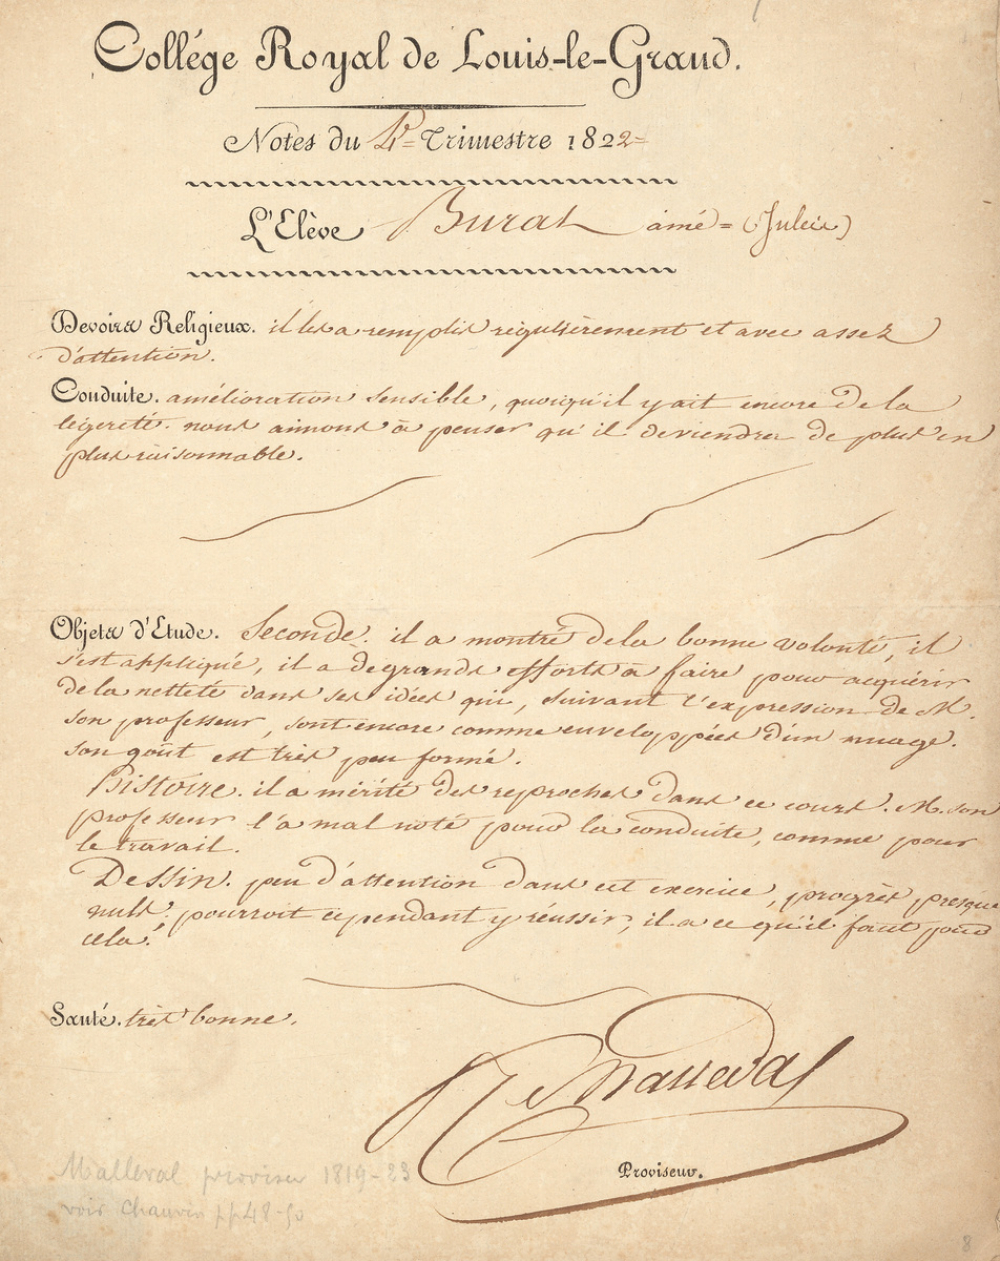 Collége Royal de Louis-le-Grand.
Notes du 4e Trimestre 1822
L'Elève Burat ainé = (Jules)
Devoirs Religieux. il les a remplis régulièrement et avec assez
d'attention.
Conduite. amélioration sensible, quoiqu'il y ait encore de la
légereté. nous aimons à penser qu'il deviendra de plus en
plus raisonnable.
Objets d'Etude. Seconde. il a montré de la bonne volonté, il
s'est appliqué, il a de grands efforts à faire pour acquérir
de la netteté dans ses idées qui, suivant l'expression de M.
son professeur, sont encore comme enveloppées d'un nuage.
son goût est très peu formé.
Histoire. il a mérité des reproches dans ce cours. M. son
professeur l'a mal noté pour la conduite, comme pour
le travail.
Dessin. peu d'attention dans cet exercice, progrès presque
nuls. pourroit cependant y réussir, il a ce qu'il faut pour
cela.
Santé. très bonne.
Malleval
Proviseur.
Malleval proviseur 1819-23
voir Chauvin pp 48-50
8